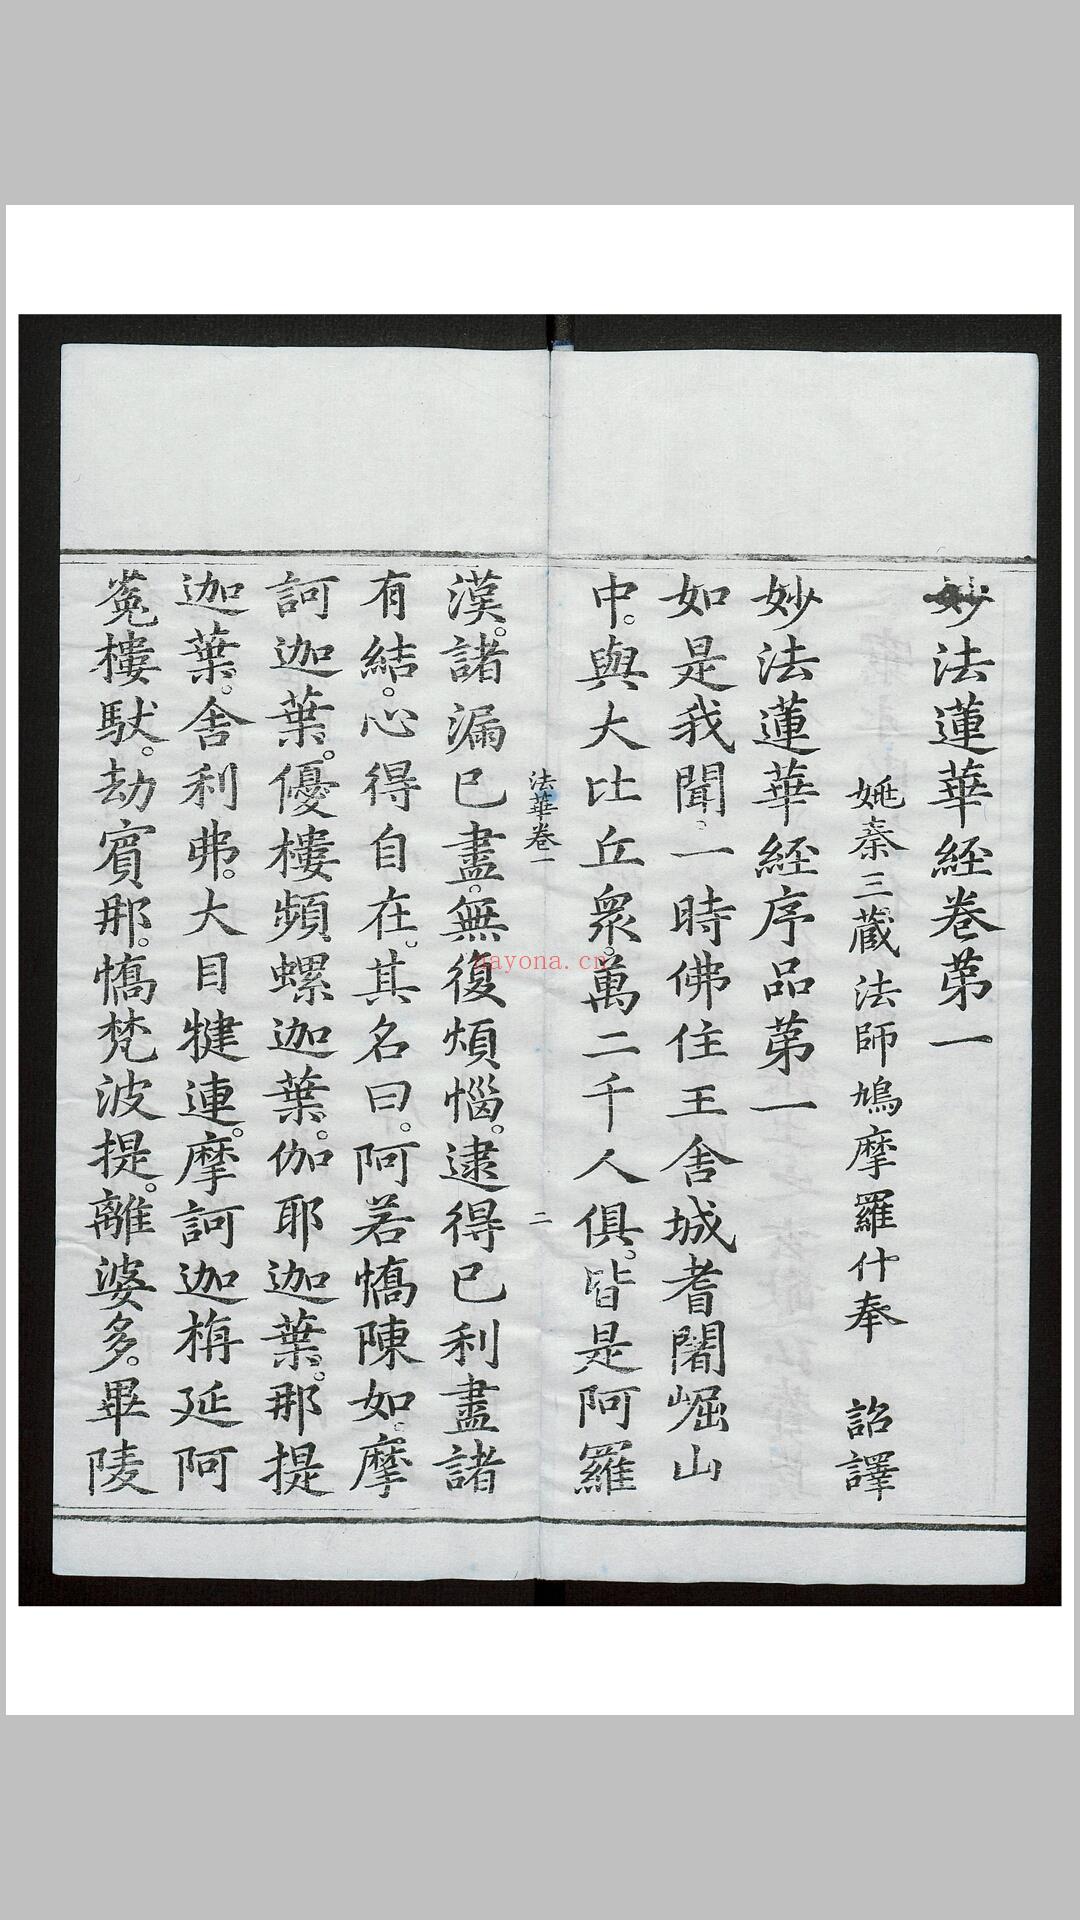 妙法蓮華經卷第一
姚秦三藏法師鳩摩羅什奉 詔譯
妙法蓮華經序品第一
如是我聞。一時佛住王舍城耆闍崛山
中。與大比丘衆。萬二千人俱。皆是阿羅
法華卷一 二
漢。諸漏已盡。無復煩惱。逮得已利盡諸
有結。心得自在。其名曰。阿若憍陳如。摩
訶迦葉。優樓頻螺迦葉。伽耶迦葉。那提
迦葉。舍利弗。大目犍連。摩訶迦栴延阿
㝹樓馱。劫賓那。憍梵波提。離婆多。畢陵
nayona.cn